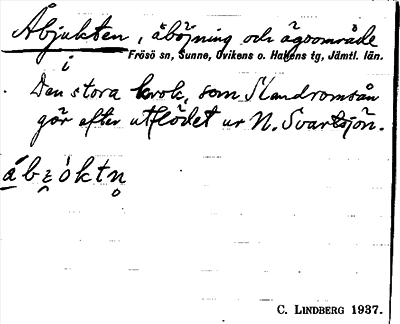 Åbjukten, åböjning och ägoområde
i Frösö sn, Sunne, Ovikens o. Hallens tg, Jämtl. län.
Den stora krok, som Slandromsån
gör efter utflödet ur N. Svartsjön.
C. LINDBERG 1937.